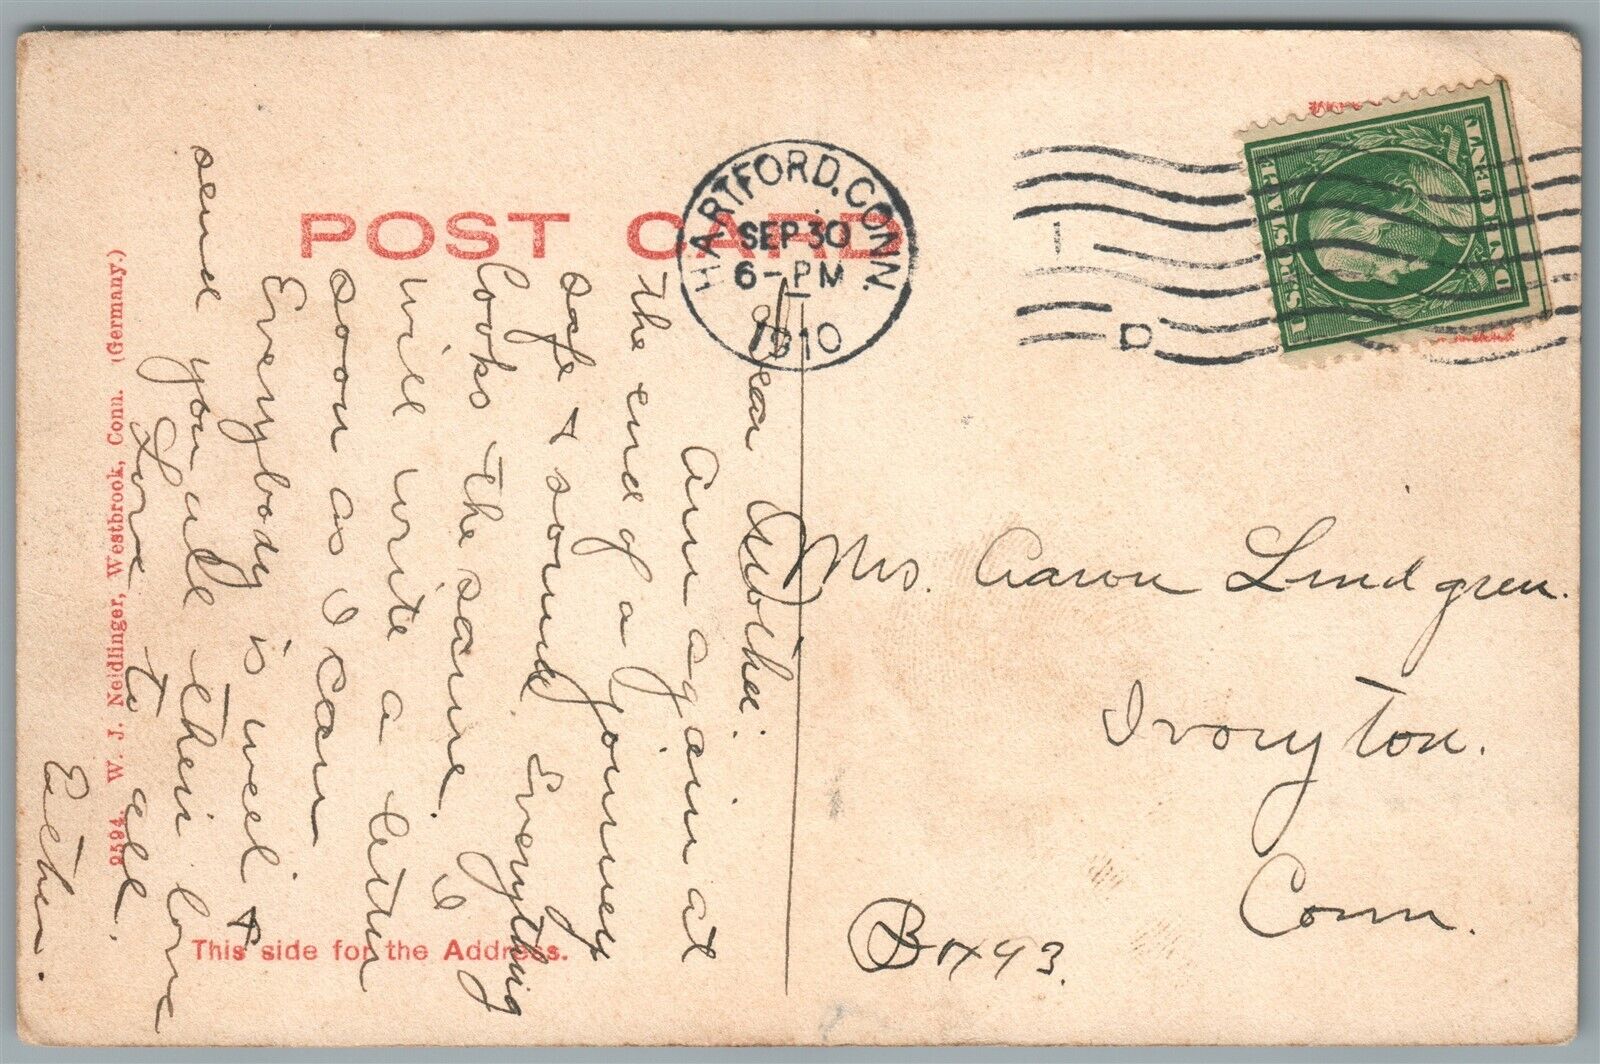 POST CARD
HARTFORD, CONN.
SEP 30
6-PM
1910
D
U.S. POSTAGE
ONE CENT
Dear Mother:
Am again at
the end of a journey
safe & sound. Everything
looks the same. I
will write a letter
soon as I can
Everybody is well &
send you all their love
Love to all.
Esther.
Mrs. Aaron Lindgren.
Ivoryton.
Conn.
Box 93.
2594. W. J. Neidlinger, Westbrook, Conn. (Germany.)
This side for the Address.